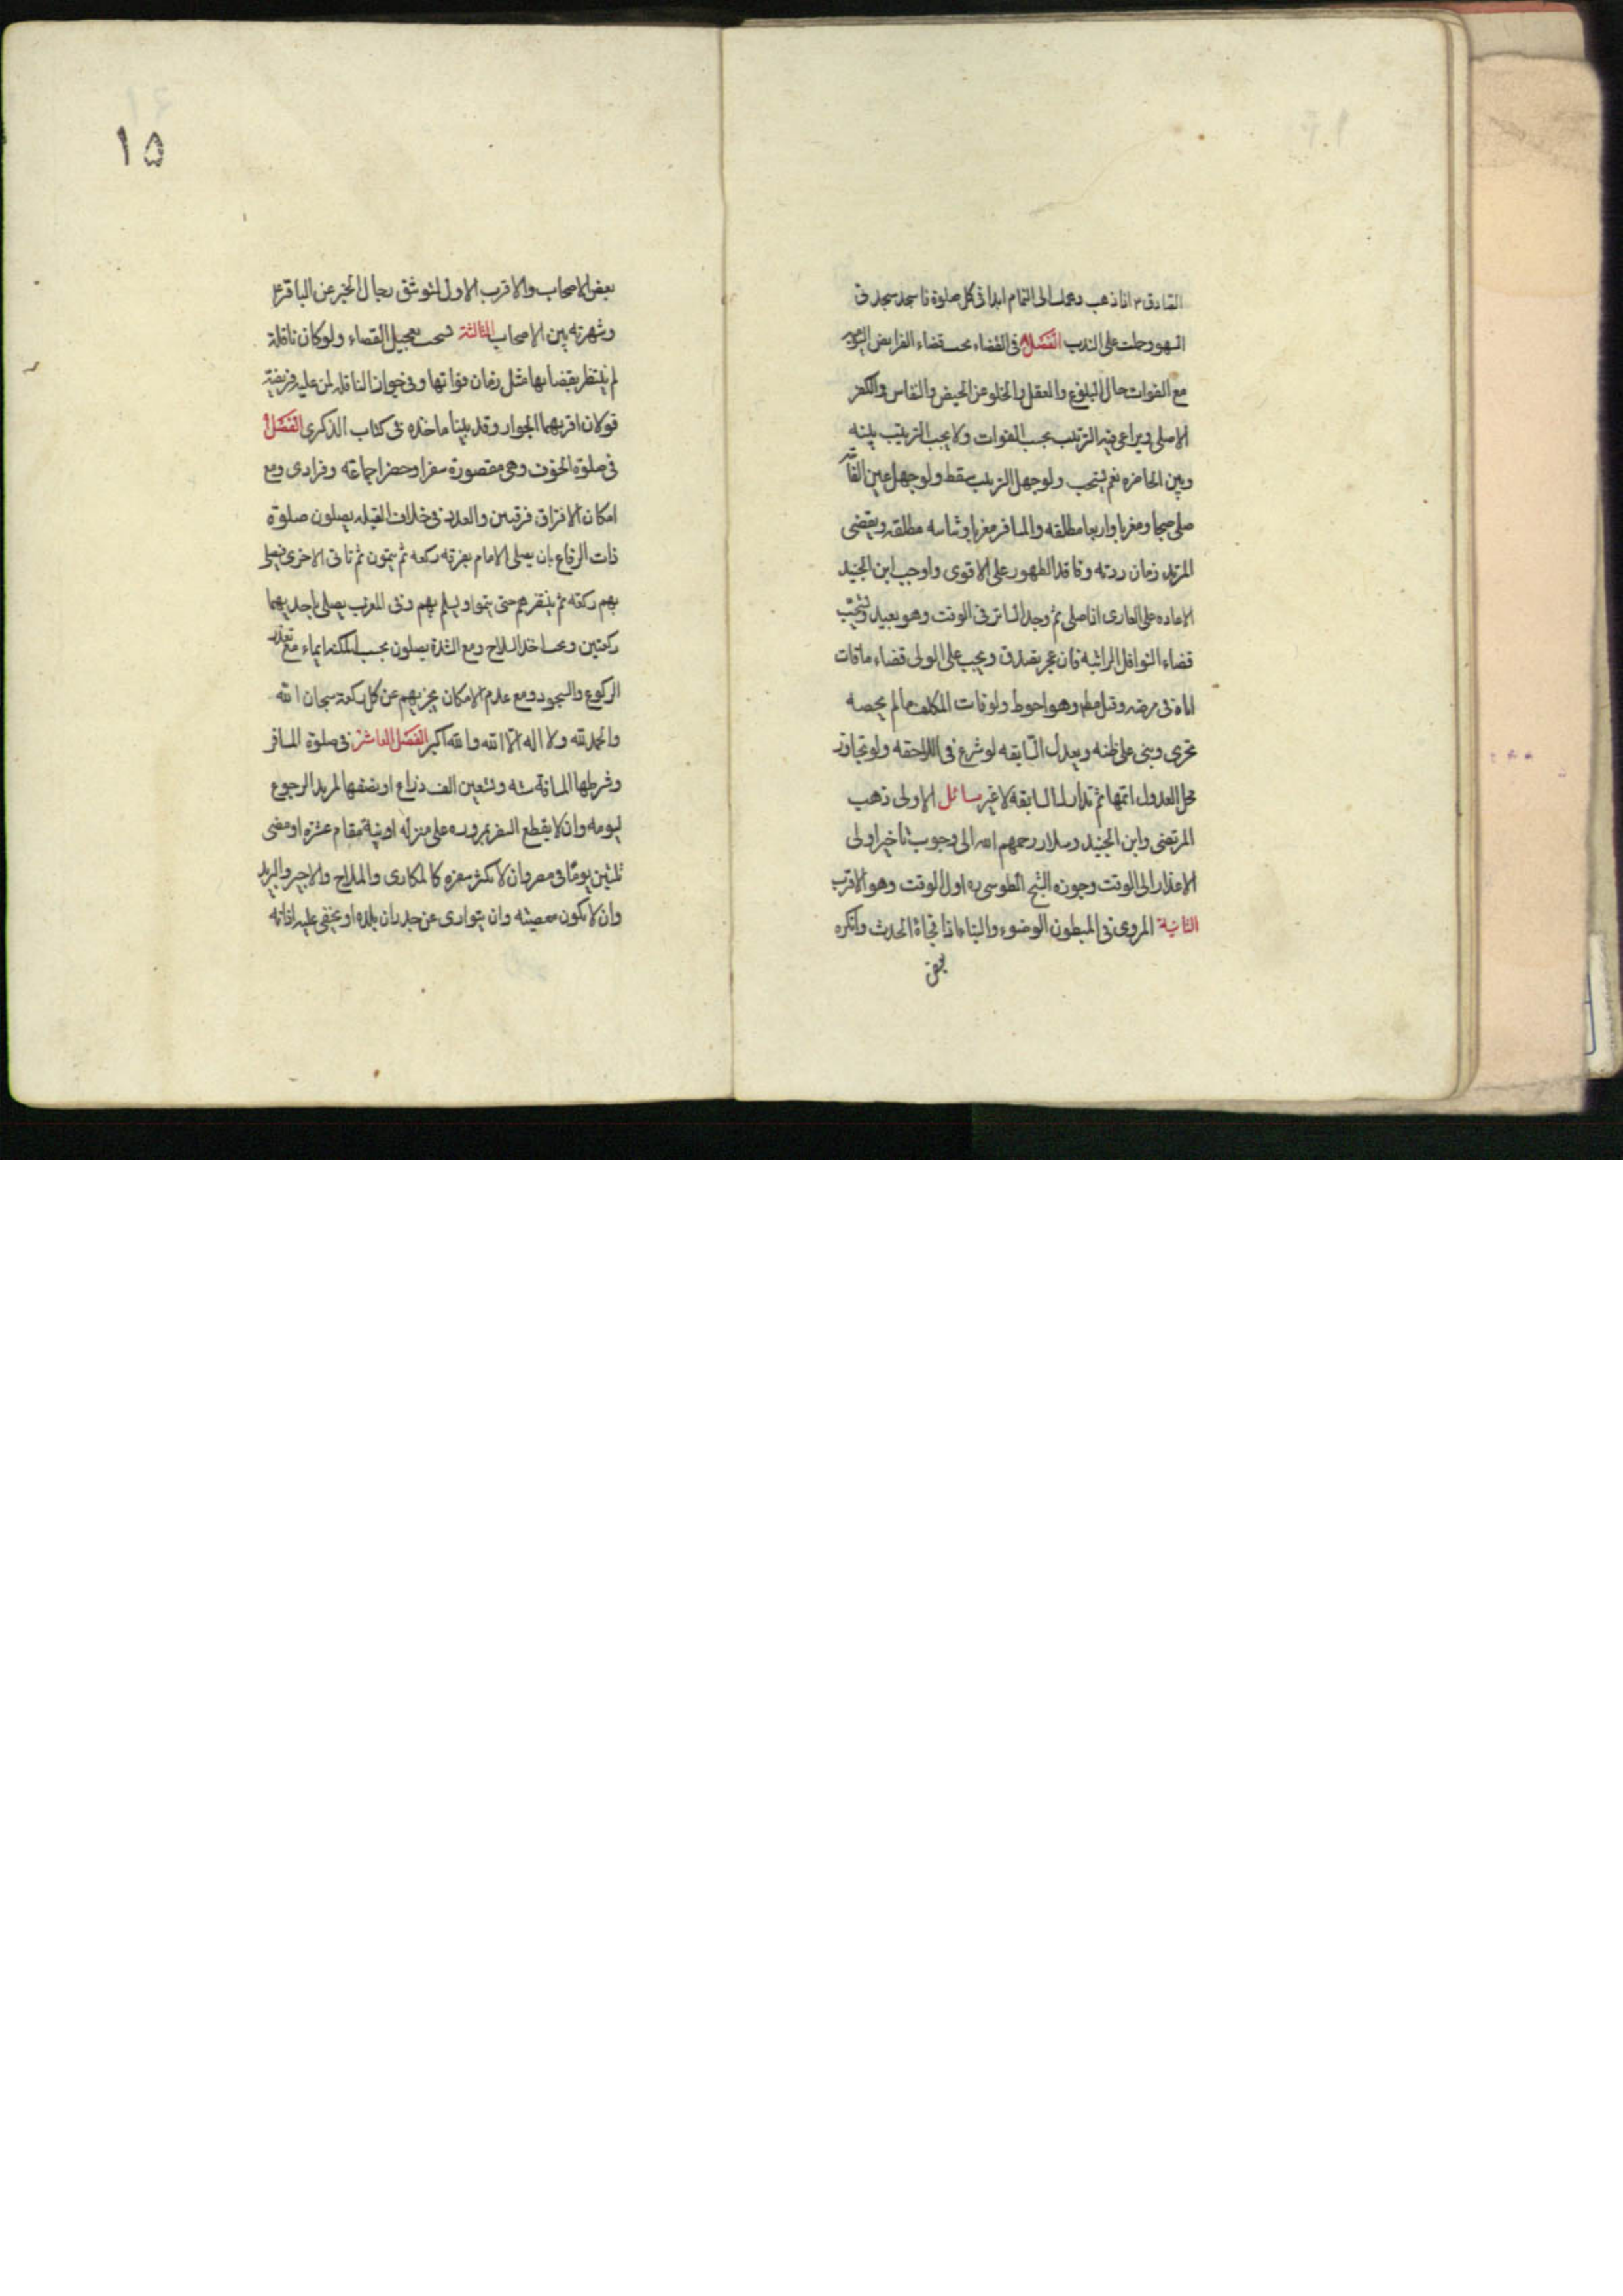 الصادق ع اذا ذهب وهمك الى التمام ابدا فى كل صلوة فاسجد سجدتى
السهو وحملت على الندب الفصل فى القضاء يجب قضاء الفرايض اليوميه
مع الفوات حال البلوغ والعقل والخلو عن الحيض والنفاس والكفر
الاصلى ويراعى فيه الترتيب بحسب الفوات ولا يجب الترتيب بينه
وبين الحاضره نعم يستحب ولو جهل الترتيب سقط ولو جهل عين الفائته
صلى صبحا ومغربا واربعا مطلقه والمسافر مغربا وثنائيه مطلقه ويقضى
المرتد زمان ردته وفاقد الطهور على الاقوى واوجب ابن الجنيد
الاعاده على العارى اذا صلى ثم وجد الساتر فى الوقت وهو بعيد ويستحب
قضاء النوافل الراتبه فان عجز تصدق ويجب على الولى قضاء ما فات
اباه فى مرضه وقيل مطم وهو احوط ولو فات المكلف ما لم يحصه
تحرى وبنى على ظنه ويعدل الى السابقه لو شرع فى اللاحقه ولو تجاوز
محل العدول اتمها ثم تدارك السابقه لا غير مسائل الاولى ذهب
المرتضى وابن الجنيد وسلار رحمهم الله الى وجوب تاخير اولى
الاعذار الى الوقت وجوزه الشيخ الطوسى ره اول الوقت وهو الاقرب
الثانية المروى فى المبطون الوضوء والبناء اذا فجاة الحدث وانكره
بعض
١٥
بعض الاصحاب والاقرب الاول لتوثيق رجال الخبر عن الباقر ع
وشهرته بين الاصحاب الثالثة يستحب تعجيل القضاء ولو كان نافلة
لم ينتظر بقضائها مثل زمان فواتها وفى جواز النافله لمن عليه فريضة
قولان اقربهما الجواز وقد بينا ماخذه فى كتاب الذكرى الفصل
فى صلوة الخوف وهى مقصورة سفرا وحضرا جماعة وفرادى ومع
امكان الافتراق فرقتين والعدو فى خلاف القبله يصلون صلوة
ذات الرقاع بان يصلى الامام بفرقه ركعه ثم يتمون ثم تاتى الاخرى فيصلى
بهم ركعه ثم ينتظرهم حتى يتموا ويسلم بهم وفى المغرب يصلى باحديهما
ركعتين ويجب اخذ السلاح ومع الشدة يصلون بحسب المكنه ايماء مع تعذر
الركوع والسجود ومع عدم الامكان يجزيهم عن كل ركعة سبحان الله
والحمد لله ولا اله الا الله والله اكبر الفصل العاشر فى صلوة المسافر
وشرطها المسافة سته وتسعين الف ذراع او نصفها لمريد الرجوع
ليومه وان لا يقطع السفر بمروره على منزله او نية مقام عشرة او مضى
ثلثين يوما فى مصر وان لا يكثر سفره كالمكارى والملاح والاجير والبريد
وان لا يكون معصيته وان يتوارى عن جدران بلده او يخفى عليه اذانه